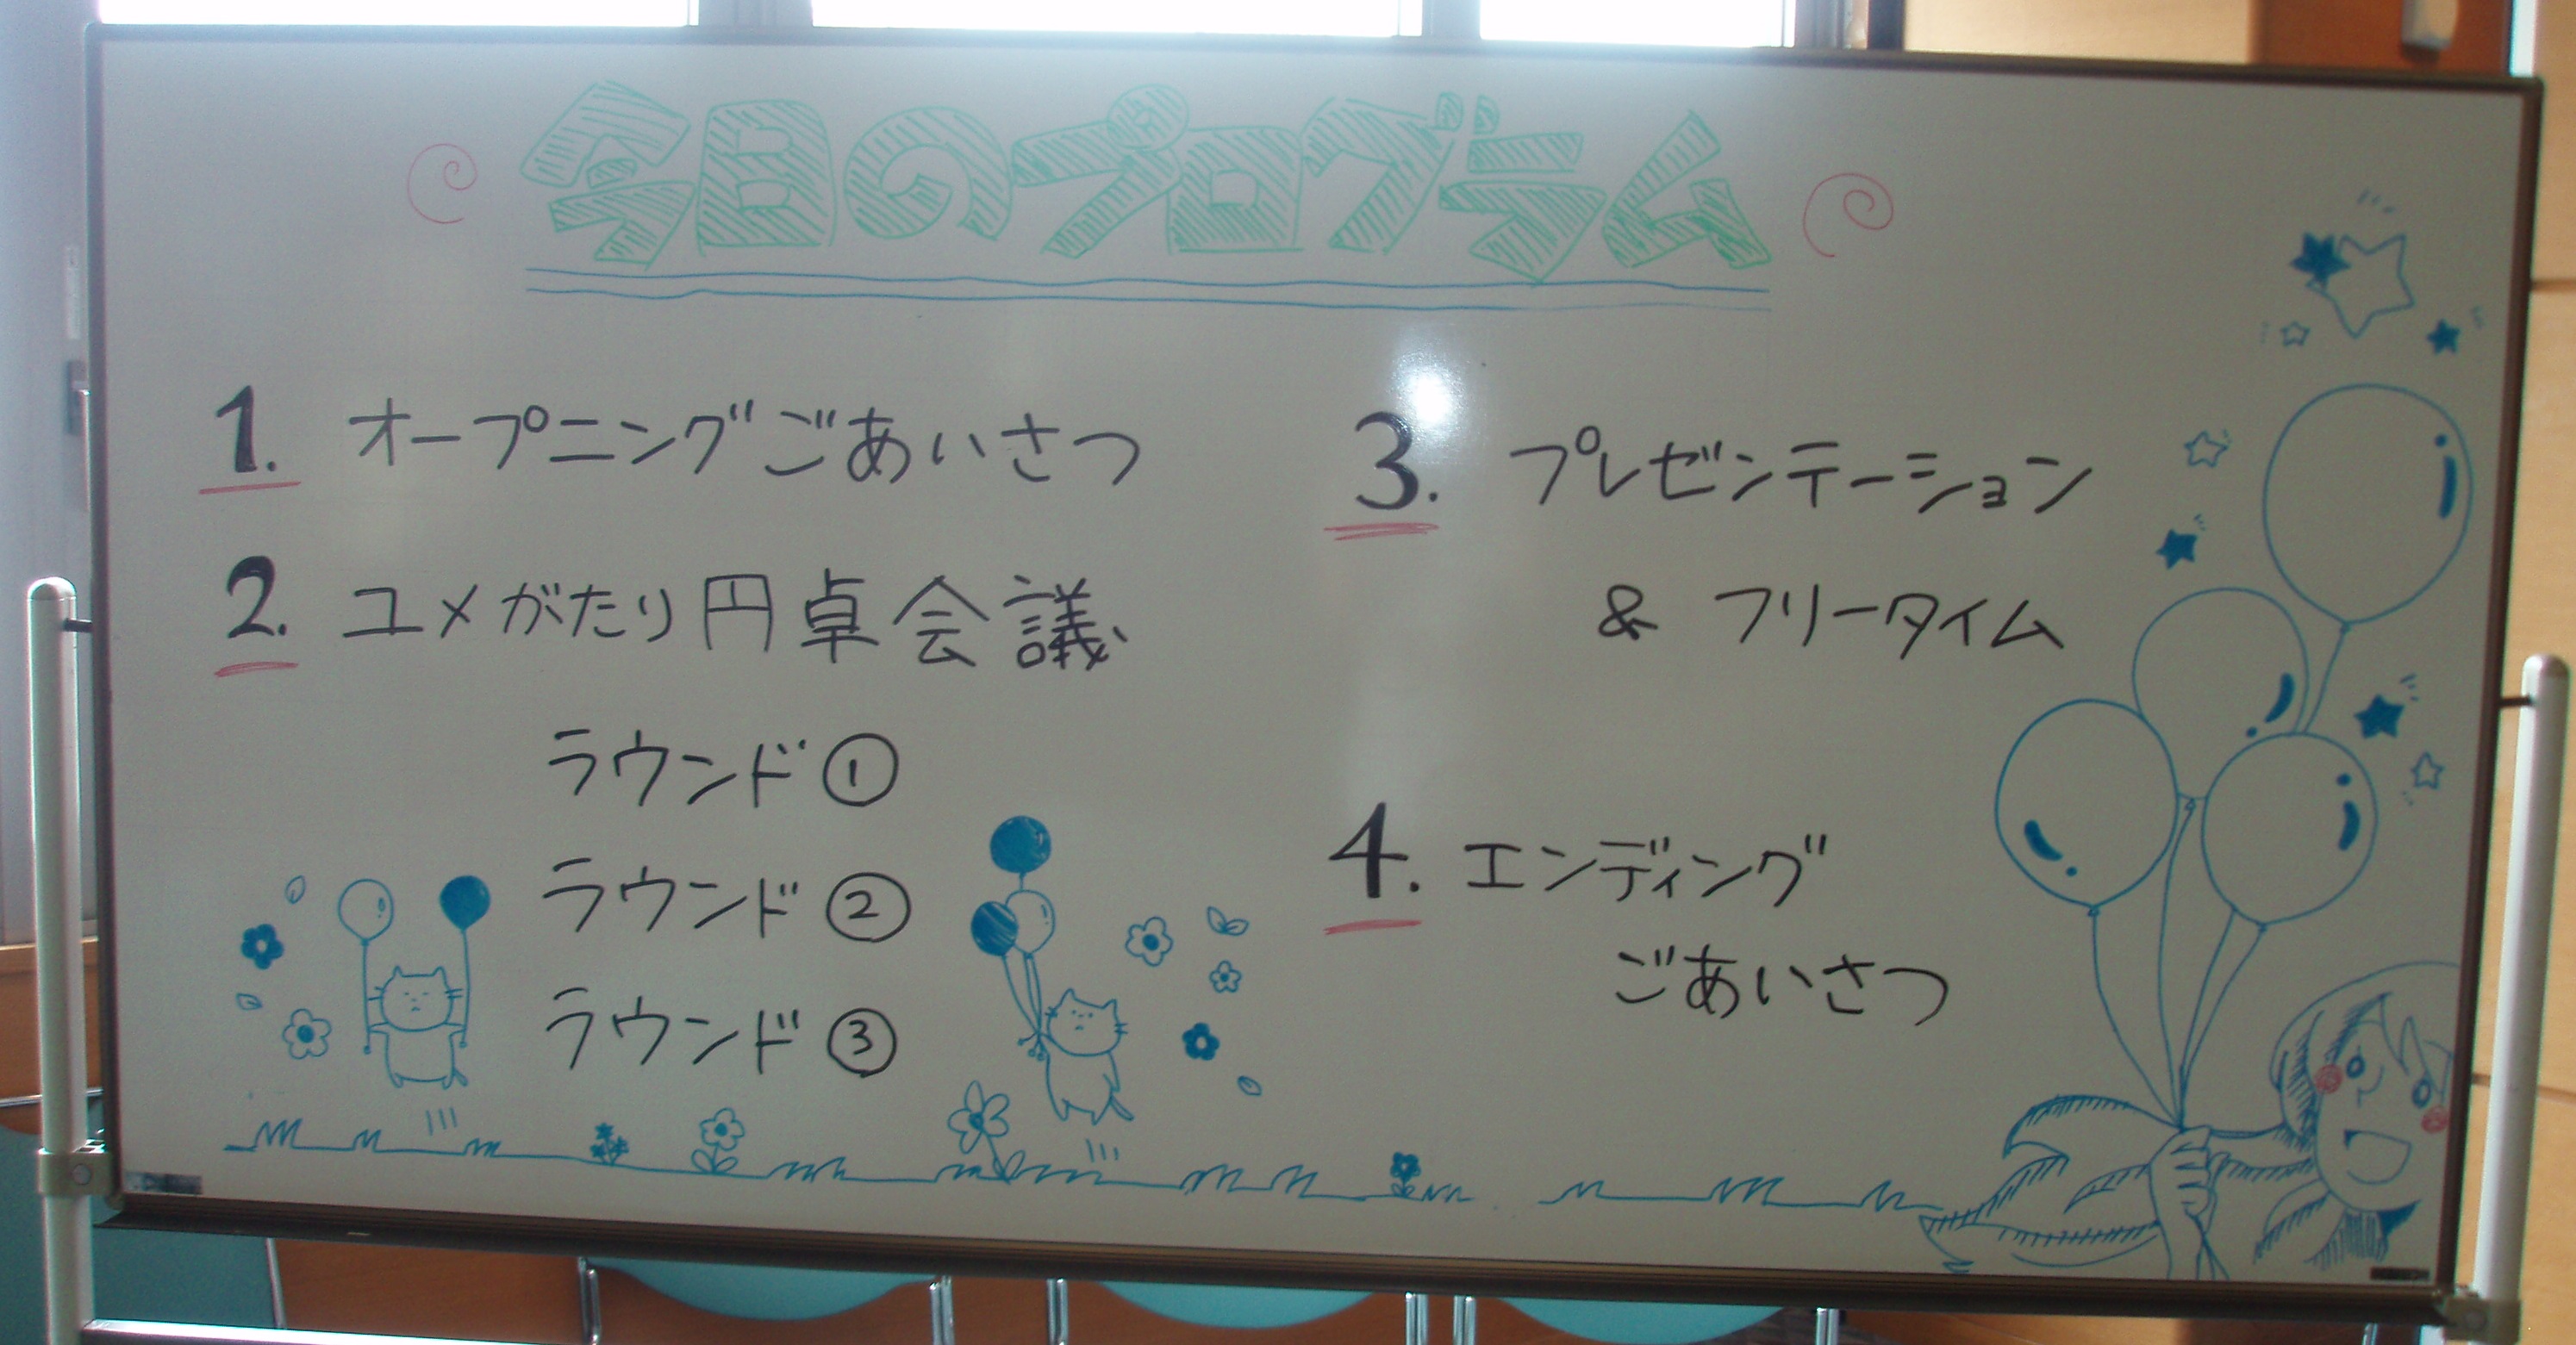 今日のプログラム
1. オープニングごあいさつ
2. ユメがたり円卓会議
ラウンド①
ラウンド②
ラウンド③
3. プレゼンテーション
& フリータイム
4. エンディング
ごあいさつ